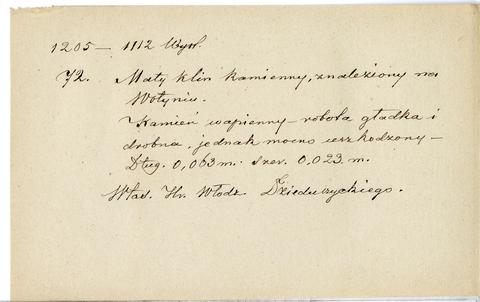 1205 — 1112 Wył.
72. Mały klin kamienny, znaleziony na
Wołyniu.
Kamień wapienny – robota gładka i
drobna, jednak mocno uszkodzony –
Dług. 0,063 m. szer. 0,023 m.
Wład. Hr. Włodz. Dzieduszyckiego.